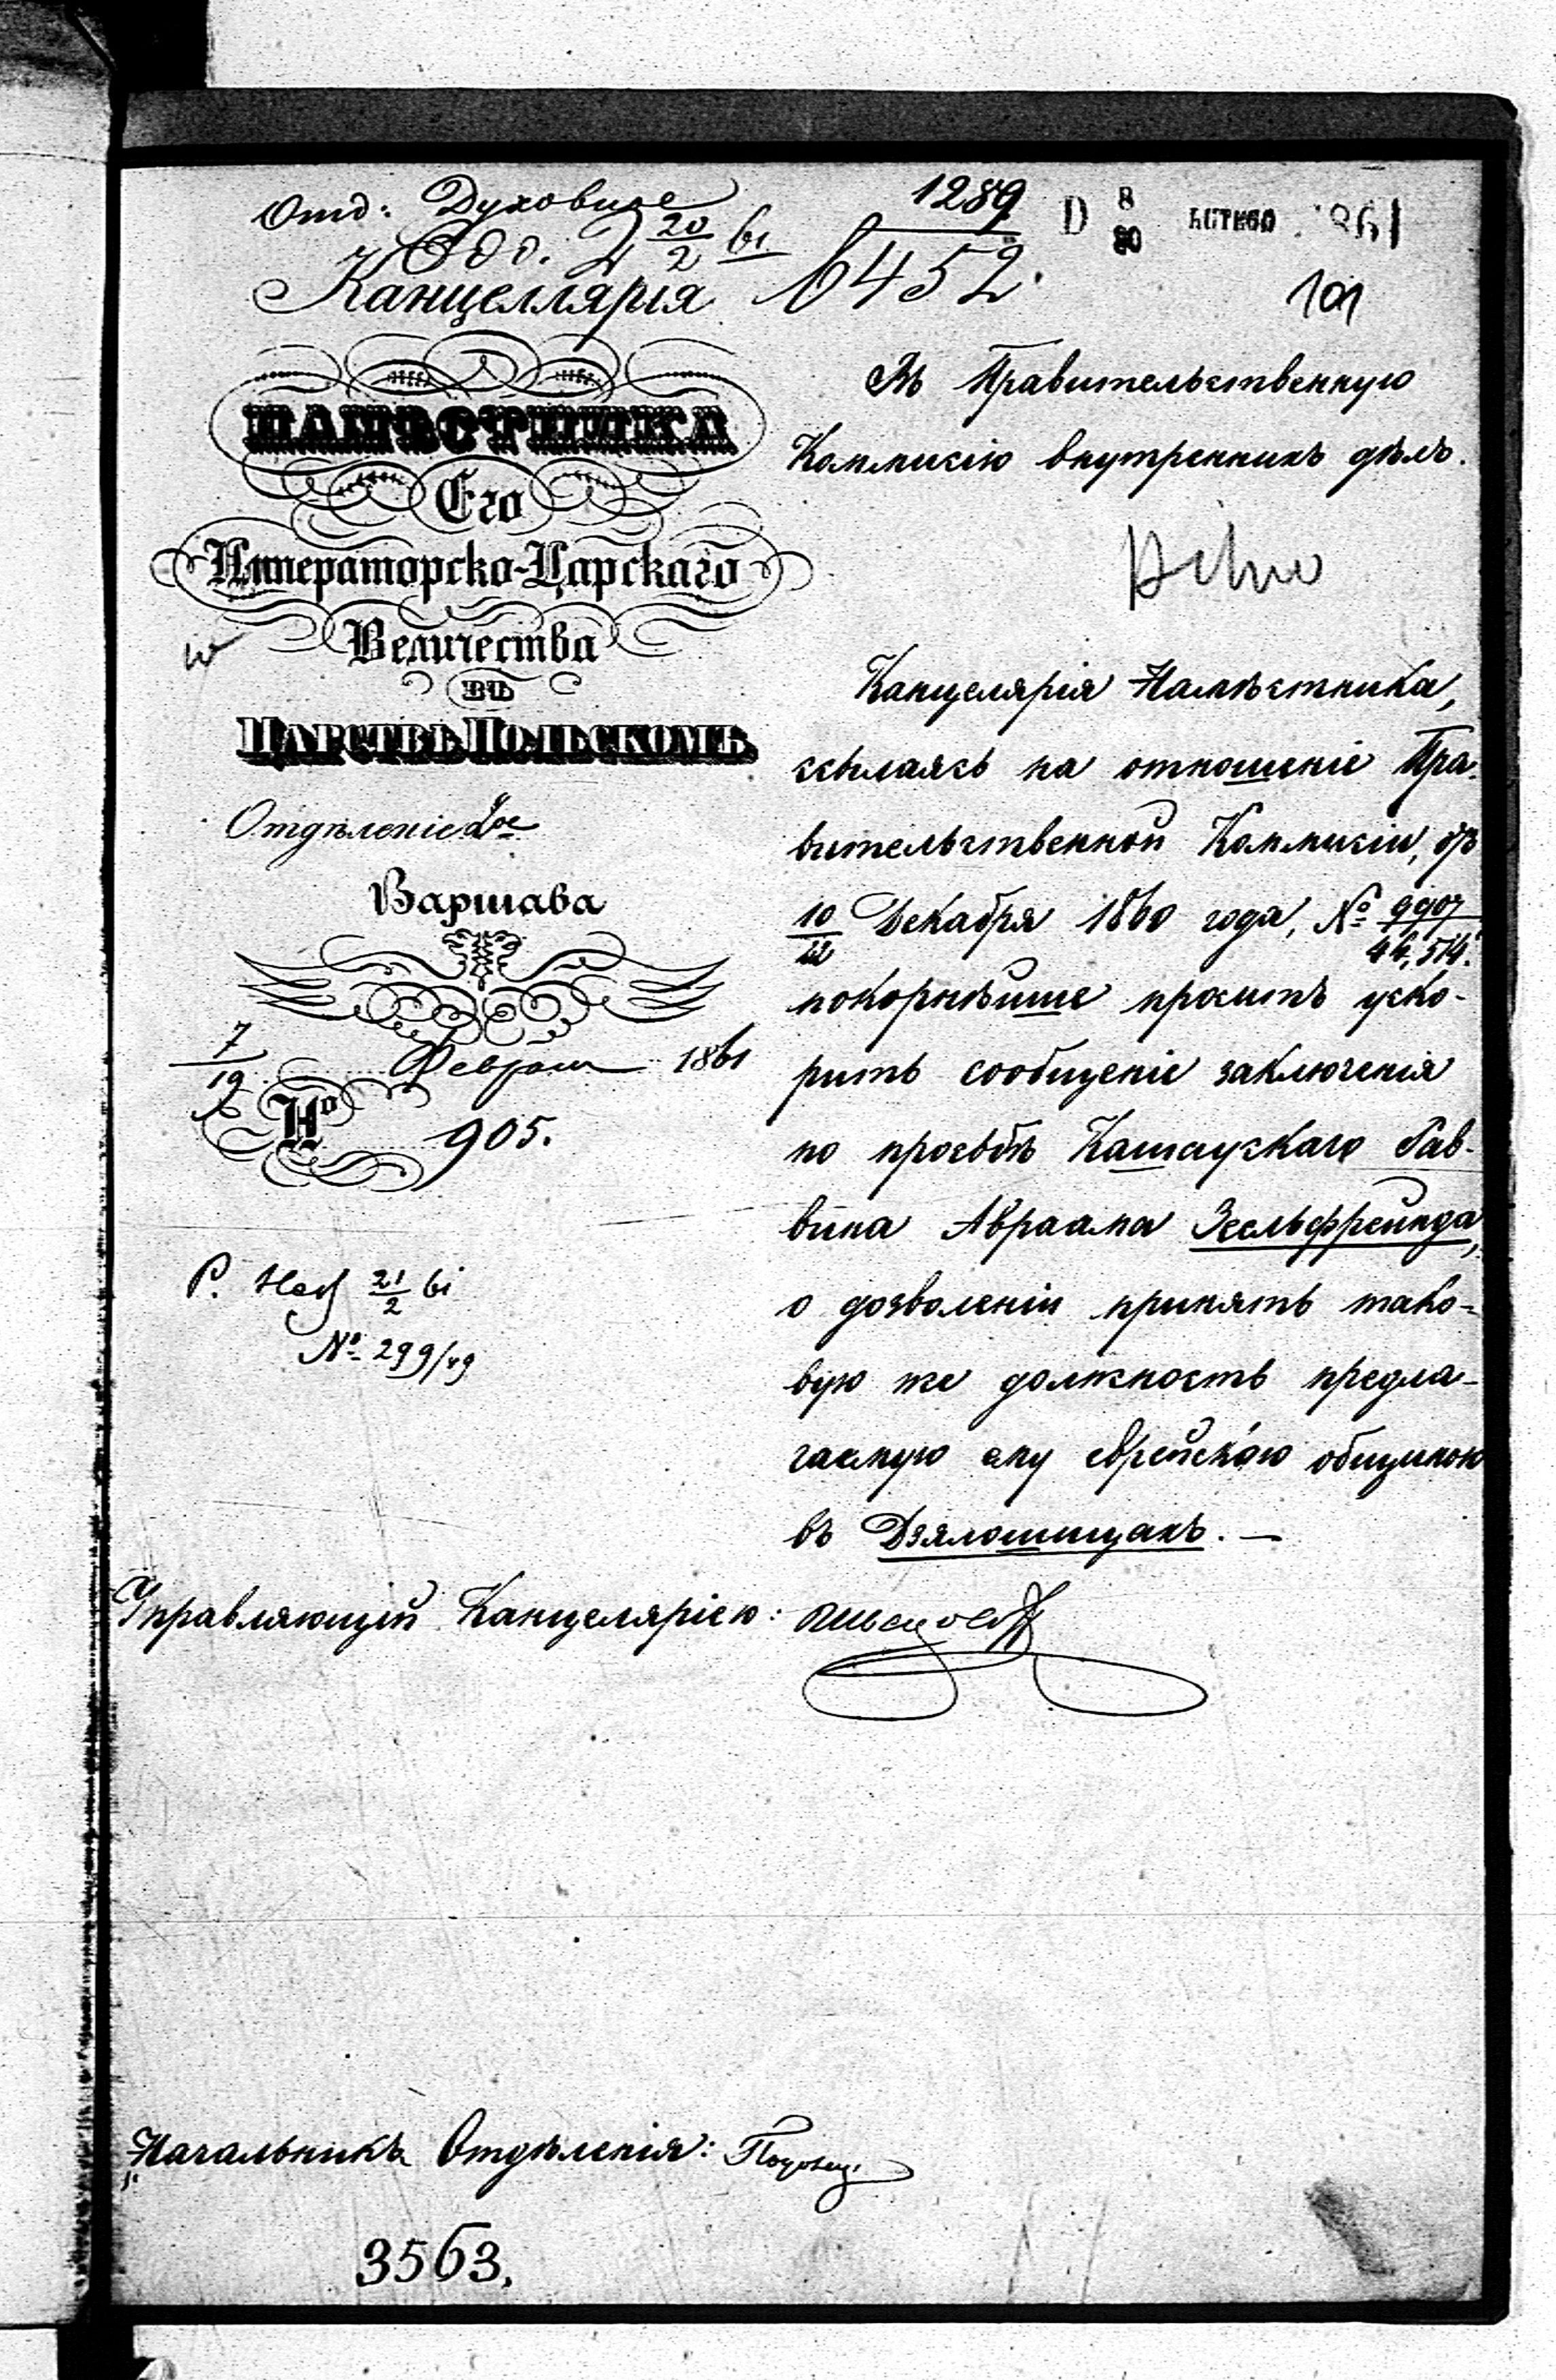 Отд: Духовное
Одд. 2 20/2 61
1289
6452.
D 8/20 LUTEGO 1861
101
Канцеллярія
НАМѢСТНИКА
Его
Императорско-Царскаго
Величества
ВЪ
ЦАРСТВѢ ПОЛЬСКОМЪ
Отдѣленіе 2ое
Варшава
7/19 Февраля 1861
№ 905.
P. 21/2 61
№ 299/49
Въ Правительственную
Коммисію внутреннихъ дѣлъ.
Канцелярія Намѣстника,
ссылаясь на отношеніе Пра-
вительственной Коммисіи, отъ
10/22 Декабря 1860 года, № 9907/46,514.
покорнѣйше проситъ уско-
рить сообщеніе заключенія
по просьбѣ Кашаускаго Рав-
вина Авраама Зеельфрейнда,
о дозволеніи принять тако-
вую же должность предла-
гаемую ему еврейскою общиною
въ Дзялошицахъ. —
Управляющій Канцеляріею:
Начальникъ Отдѣленія:
3563.